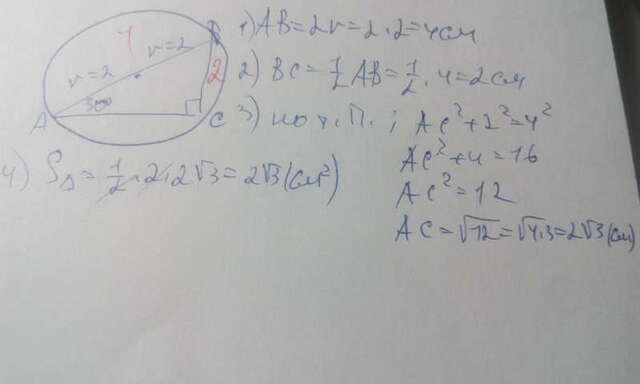 4
r=2
r=2
B
2
30°
A
C
1) AB=2r=2·2=4см
2) BC=1/2 AB=1/2·4=2см
3) по т.П.; AC²+2²=4²
AC²+4=16
AC²=12
AC=√12=√4·3=2√3(см)
4) S△=1/2·2·2√3=2√3(см²)